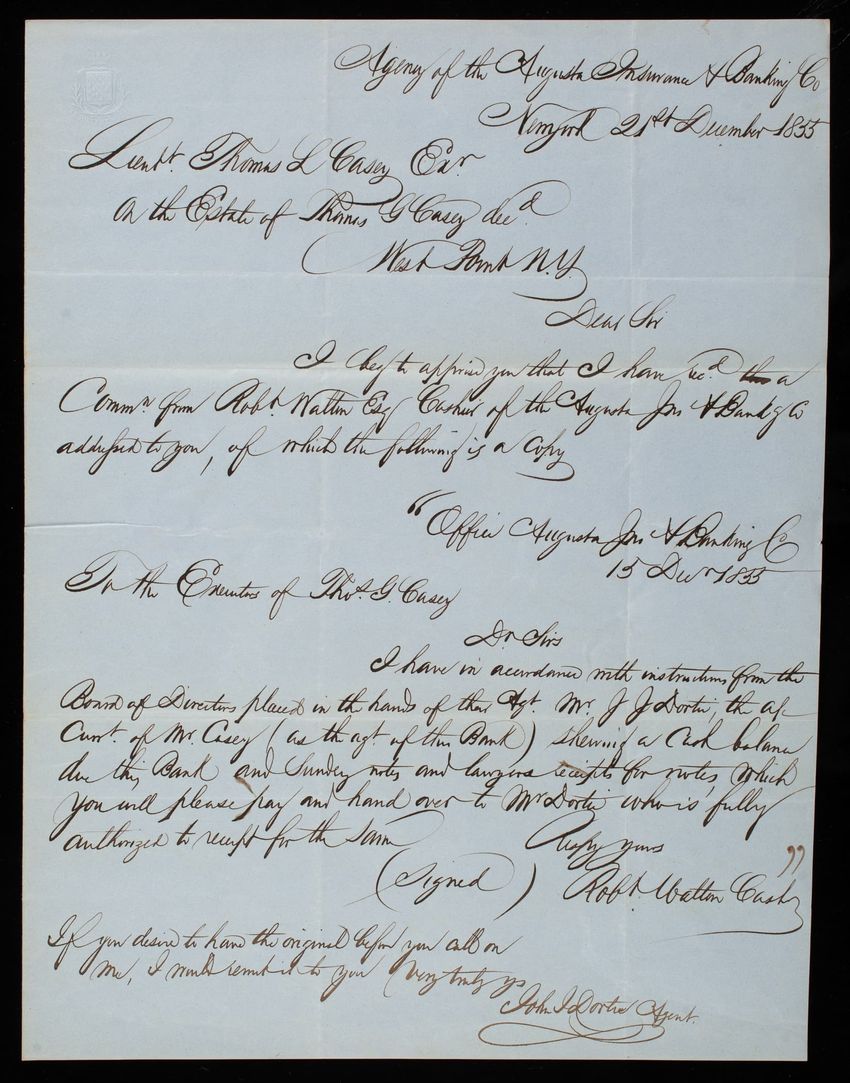 Agency of the Augusta Insurance & Banking Co
New York 21st December 1855
Lieut. Thomas L Casey Exr
On the Estate of Thomas G Casey decd.
West Point N.Y.
Dear Sir
I beg to apprise you that I have recd. a
Commn. from Robt. Walton Esq Cashier of the Augusta Ins & Bankg Co
addressed to you, of which the following is a Copy
"Office Augusta Ins & Banking Co
15 Decr 1855
To the Executors of Thos. G. Casey
Dr Sirs
I have in accordance with instructions from the
Board of Directors placed in the hands of their Agt. Mr. J J Dortic, the ac-
Curt. of Mr. Casey (as the agt. of this Bank) shewing a Cash balance
due this Bank and Sundry notes and lawyers receipts for notes, which
you will please pay and hand over to Mr Dortic who is fully
authorized to receipt for the same
Respy yours
(Signed) Robt. Walton Cash"
If you desire to have the original before you call on
me, I would remit it to you Very truly ys
John J Dortic Agent.